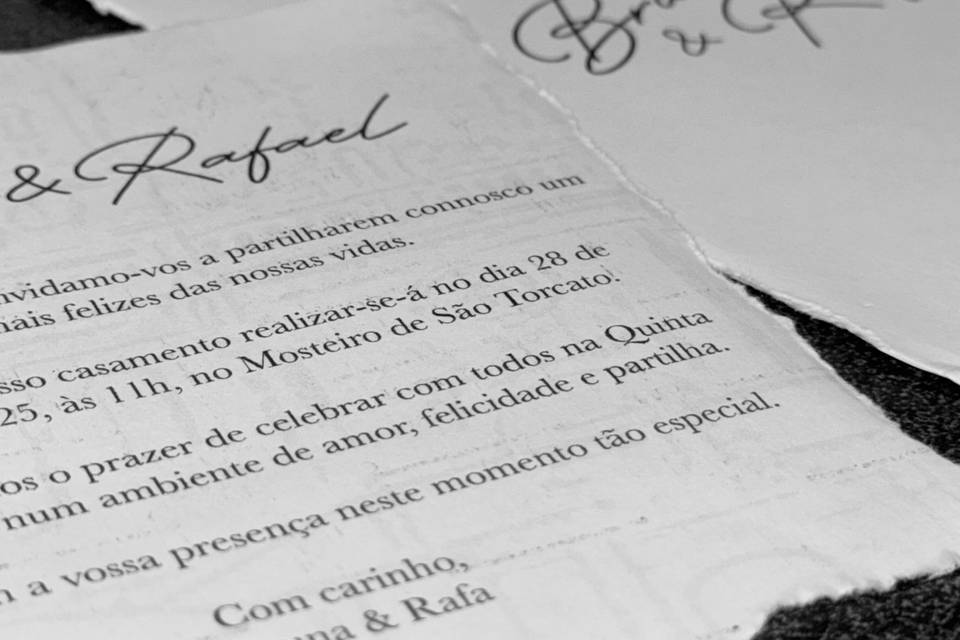 & Rafael
& R
a partilharem connosco um
felizes das nossas vidas.
casamento realizar-se-á no dia 28 de
25, às 11h, no Mosteiro de São Torcato!
o prazer de celebrar com todos na Quinta
num ambiente de amor, felicidade e partilha.
a vossa presença neste momento tão especial.
Com carinho,
& Rafa